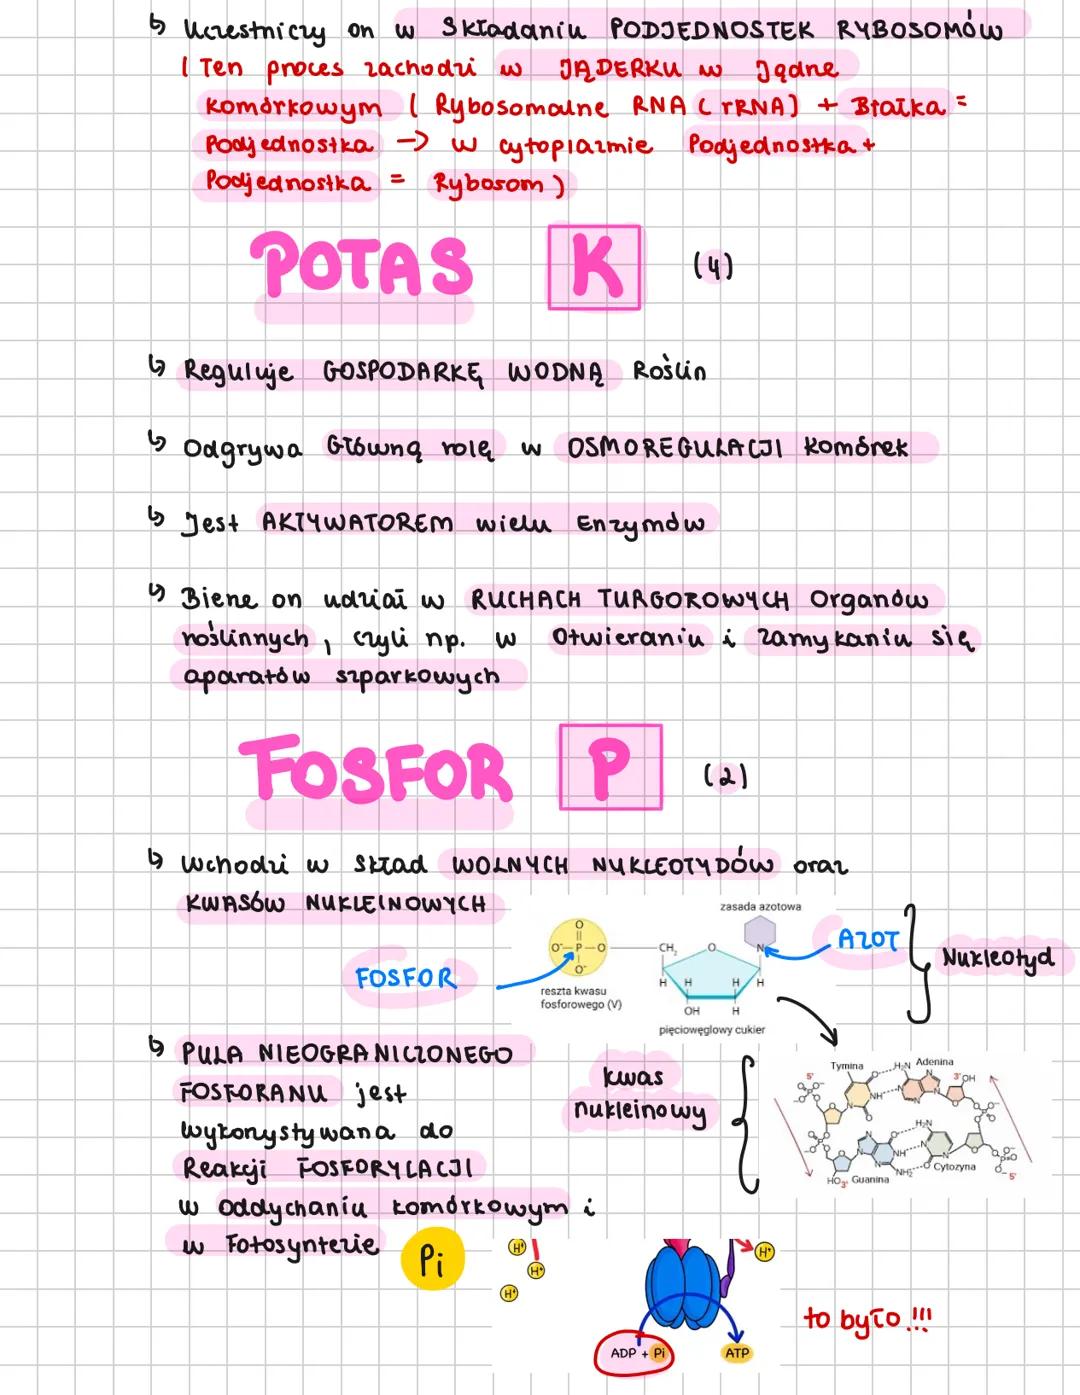 ↳ Uczestniczy on w Składaniu PODJEDNOSTEK RYBOSOMÓW
( Ten proces zachodzi w JĄDERKU w Jądrze
komórkowym ( Rybosomalne RNA ( rRNA) + Białka =
Podjednostka → w cytoplazmie Podjednostka +
Podjednostka = Rybosom )
POTAS K (4)
↳ Reguluje GOSPODARKĘ WODNĄ Roślin
↳ Odgrywa Główną rolę w OSMOREGULACJI komórek
↳ Jest AKTYWATOREM wielu Enzymów
↳ Bierze on udział w RUCHACH TURGOROWYCH Organów
roślinnych, czyli np. w Otwieraniu i zamykaniu się
aparatów szparkowych
FOSFOR P (2)
↳ Wchodzi w Skład WOLNYCH NUKLEOTYDÓW oraz
KWASÓW NUKLEINOWYCH
zasada azotowa
O
O⁻ P O
O⁻
CH₂ O N
AZOT
Nukleotyd
FOSFOR
H H H H
OH H
reszta kwasu
fosforowego (V)
pięciowęglowy cukier
↳ PULA NIEOGRANICZONEGO
FOSFORANU jest
wykorzystywana do
Reakcji FOSFORYLACJI
w Oddychaniu komórkowym i
w Fotosyntezie
Pi
kwas
nukleinowy
Tymina H₂N Adenina
5' 3' OH
NH
H₂N
NH
NH₂ O Cytozyna
HO 3' Guanina 5'
H⁺ H⁺
H⁺
H⁺
ADP + Pi ATP
to było !!!